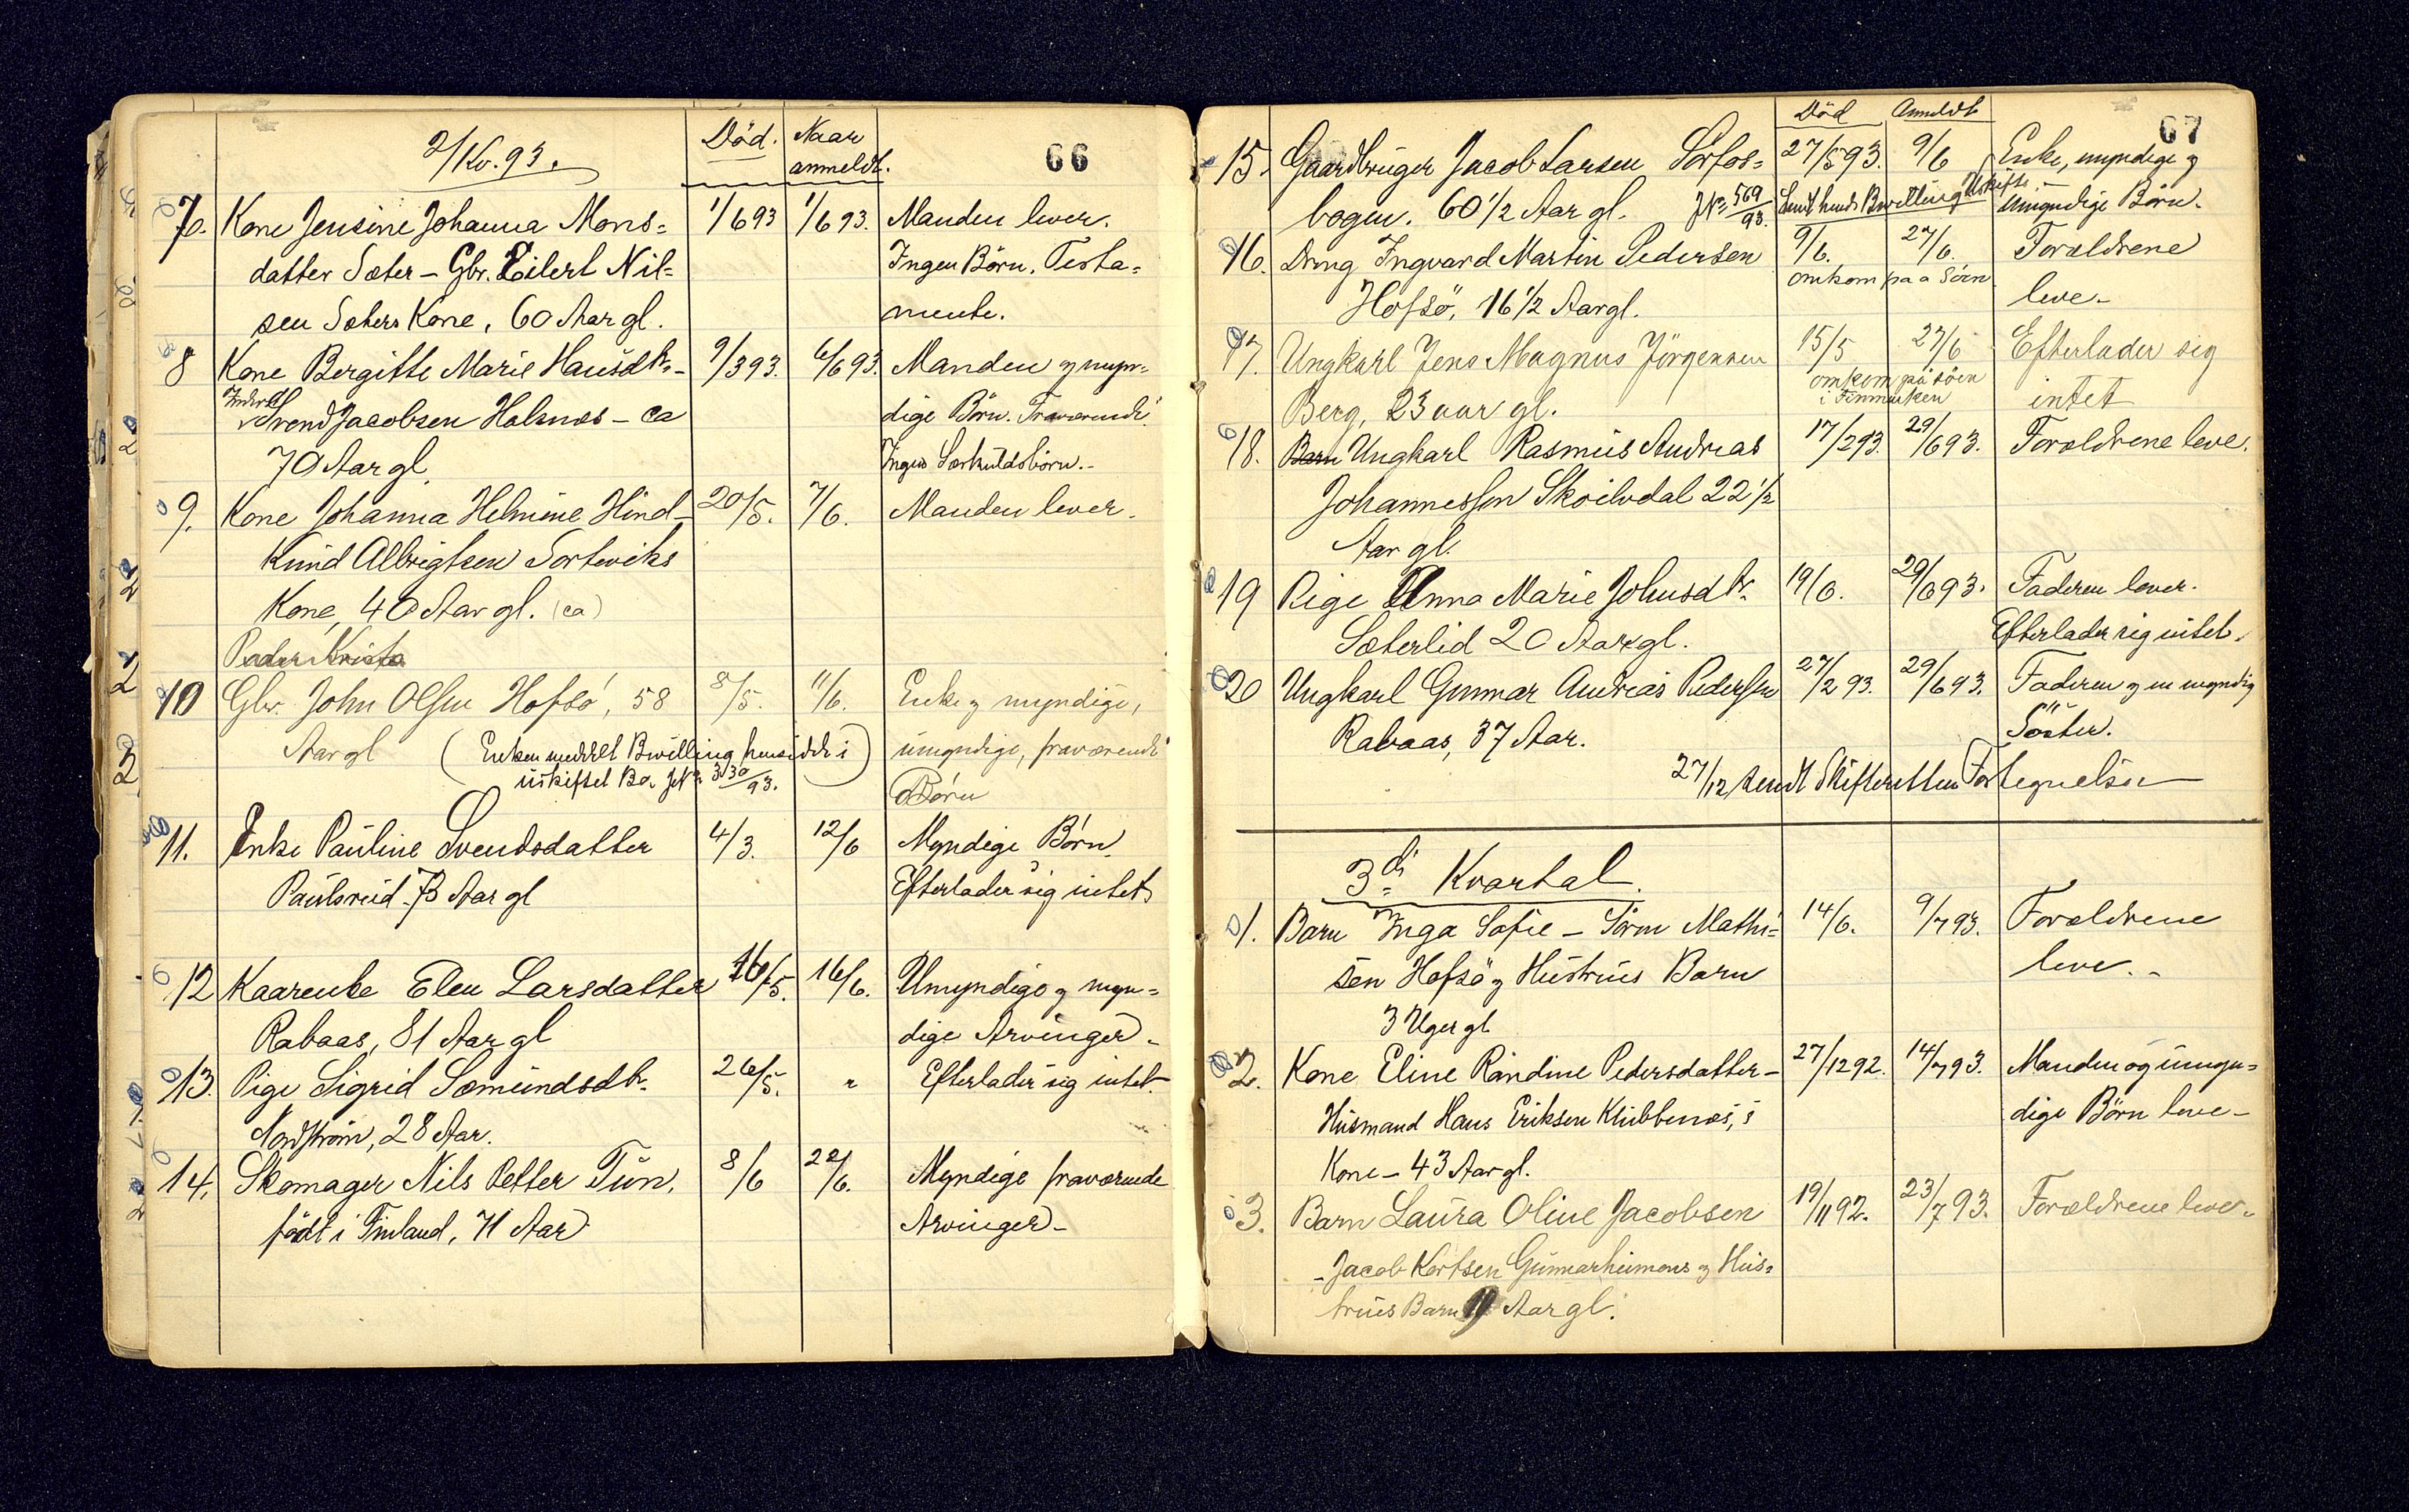 2/Kv. 93.
Död. Naar anmeldt.
66
7. Kone Jensine Johanna Mons= 1/6 93 1/6 93. Manden lever.
datter Sæter - Gbr. Eilert Nil= Ingen Börn. Testa=
sen Sæters Kone, 60 Aar gl. mente.
8 Kone Bergitte Marie Hansdtr. - 9/3 93. 6/6 93. Manden og myn=
Inderst Svend Jacobsen Halsnæs - ca dige Börn. Fraværende.
70 Aar gl. Ingen Særkuldsbörn. -
9. Kone Johanna Helmine Hind - 20/5. 7/6. Manden lever.
Knud Albrigtsen Torteviks
Kone, 40 Aar gl. (ca)
Peder Kristo
10 Gbr. John Olsen Hofsö, 58 8/5. 11/6. Enke og myndige,
Aar gl (Enken meddelt Bevilling hensidde i umyndige, fraværende
uskiftet Bo. JNo 330/93.) Börn
11. Enke Pauline Svendsdatter 4/3. 12/6 Myndige Börn.
Paulsreid 73 Aar gl Efterlader sig intet
12 Kaarenke Elen Larsdatter 16/5. 16/6. Umyndige og myn=
Rabaas, 81 Aar gl dige Arvinger -
13. Pige Sigrid Sæmundsdtr. 26/5. " Efterlader sig intet.
Nordstrøm, 28 Aar.
14. Skomager Nils Petter Tun, 8/6 22/6. Myndige fraværende
födt i Finland, 71 Aar Arvinger -
67
Död Anmeldt
15. Gaardbruger Jacob Larsen Sörfos= 27/5 93. 9/6 Enke, myndige og
bogen. 60 1/2 Aar gl. JNo 569/93. Sendt hende Bevilling Uskifte umyndige Börn.
16. Dreng Ingvard Martin Pedersen 9/6. 27/6. Forældrene
Hofsö, 16 1/2 Aar gl. omkom paa Söen leve -
17. Ungkarl Jens Magnus Jörgensen 15/5 27/6 Efterlader sig
Berg, 23 aar gl. omkom på söen i Finmarken intet
18. Barn Ungkarl Rasmus Andreas 17/2 93. 29/6 93. Forældrene leve.
Johannessen Skoilvdal 22 1/2
Aar gl.
19 Pige Anna Marie Johnsdtr. 19/6. 29/6 93. Faderen lever.
Sæterlid 20 Aar gl. Efterlader sig intet.
20 Ungkarl Gunnar Andreas Pedersen 27/2 93. 29/6 93. Faderen og en myndig
Rabaas, 37 Aar. Söster.
27/12 sendt Skifteretten Fortegnelse
3di Kvartal.
1. Barn Inga Sofie - Sören Mathi= 14/6. 9/7 93. Forældrene
sen Hofsö og Hustrus Barn leve. -
3 Uger gl
2. Kone Eline Randine Pedersdatter - 27/12 92. 14/7 93. Manden og umyn=
Husmand Hans Eriksen Klubbenæs's dige Börn leve -
Kone - 43 Aar gl.
3. Barn Laura Oline Jacobsen 19/11 92. 23/7 93. Forældrene leve -
- Jacob Kortsen Gunnarheimens og Hus=
trus Barn 11 Aar gl.